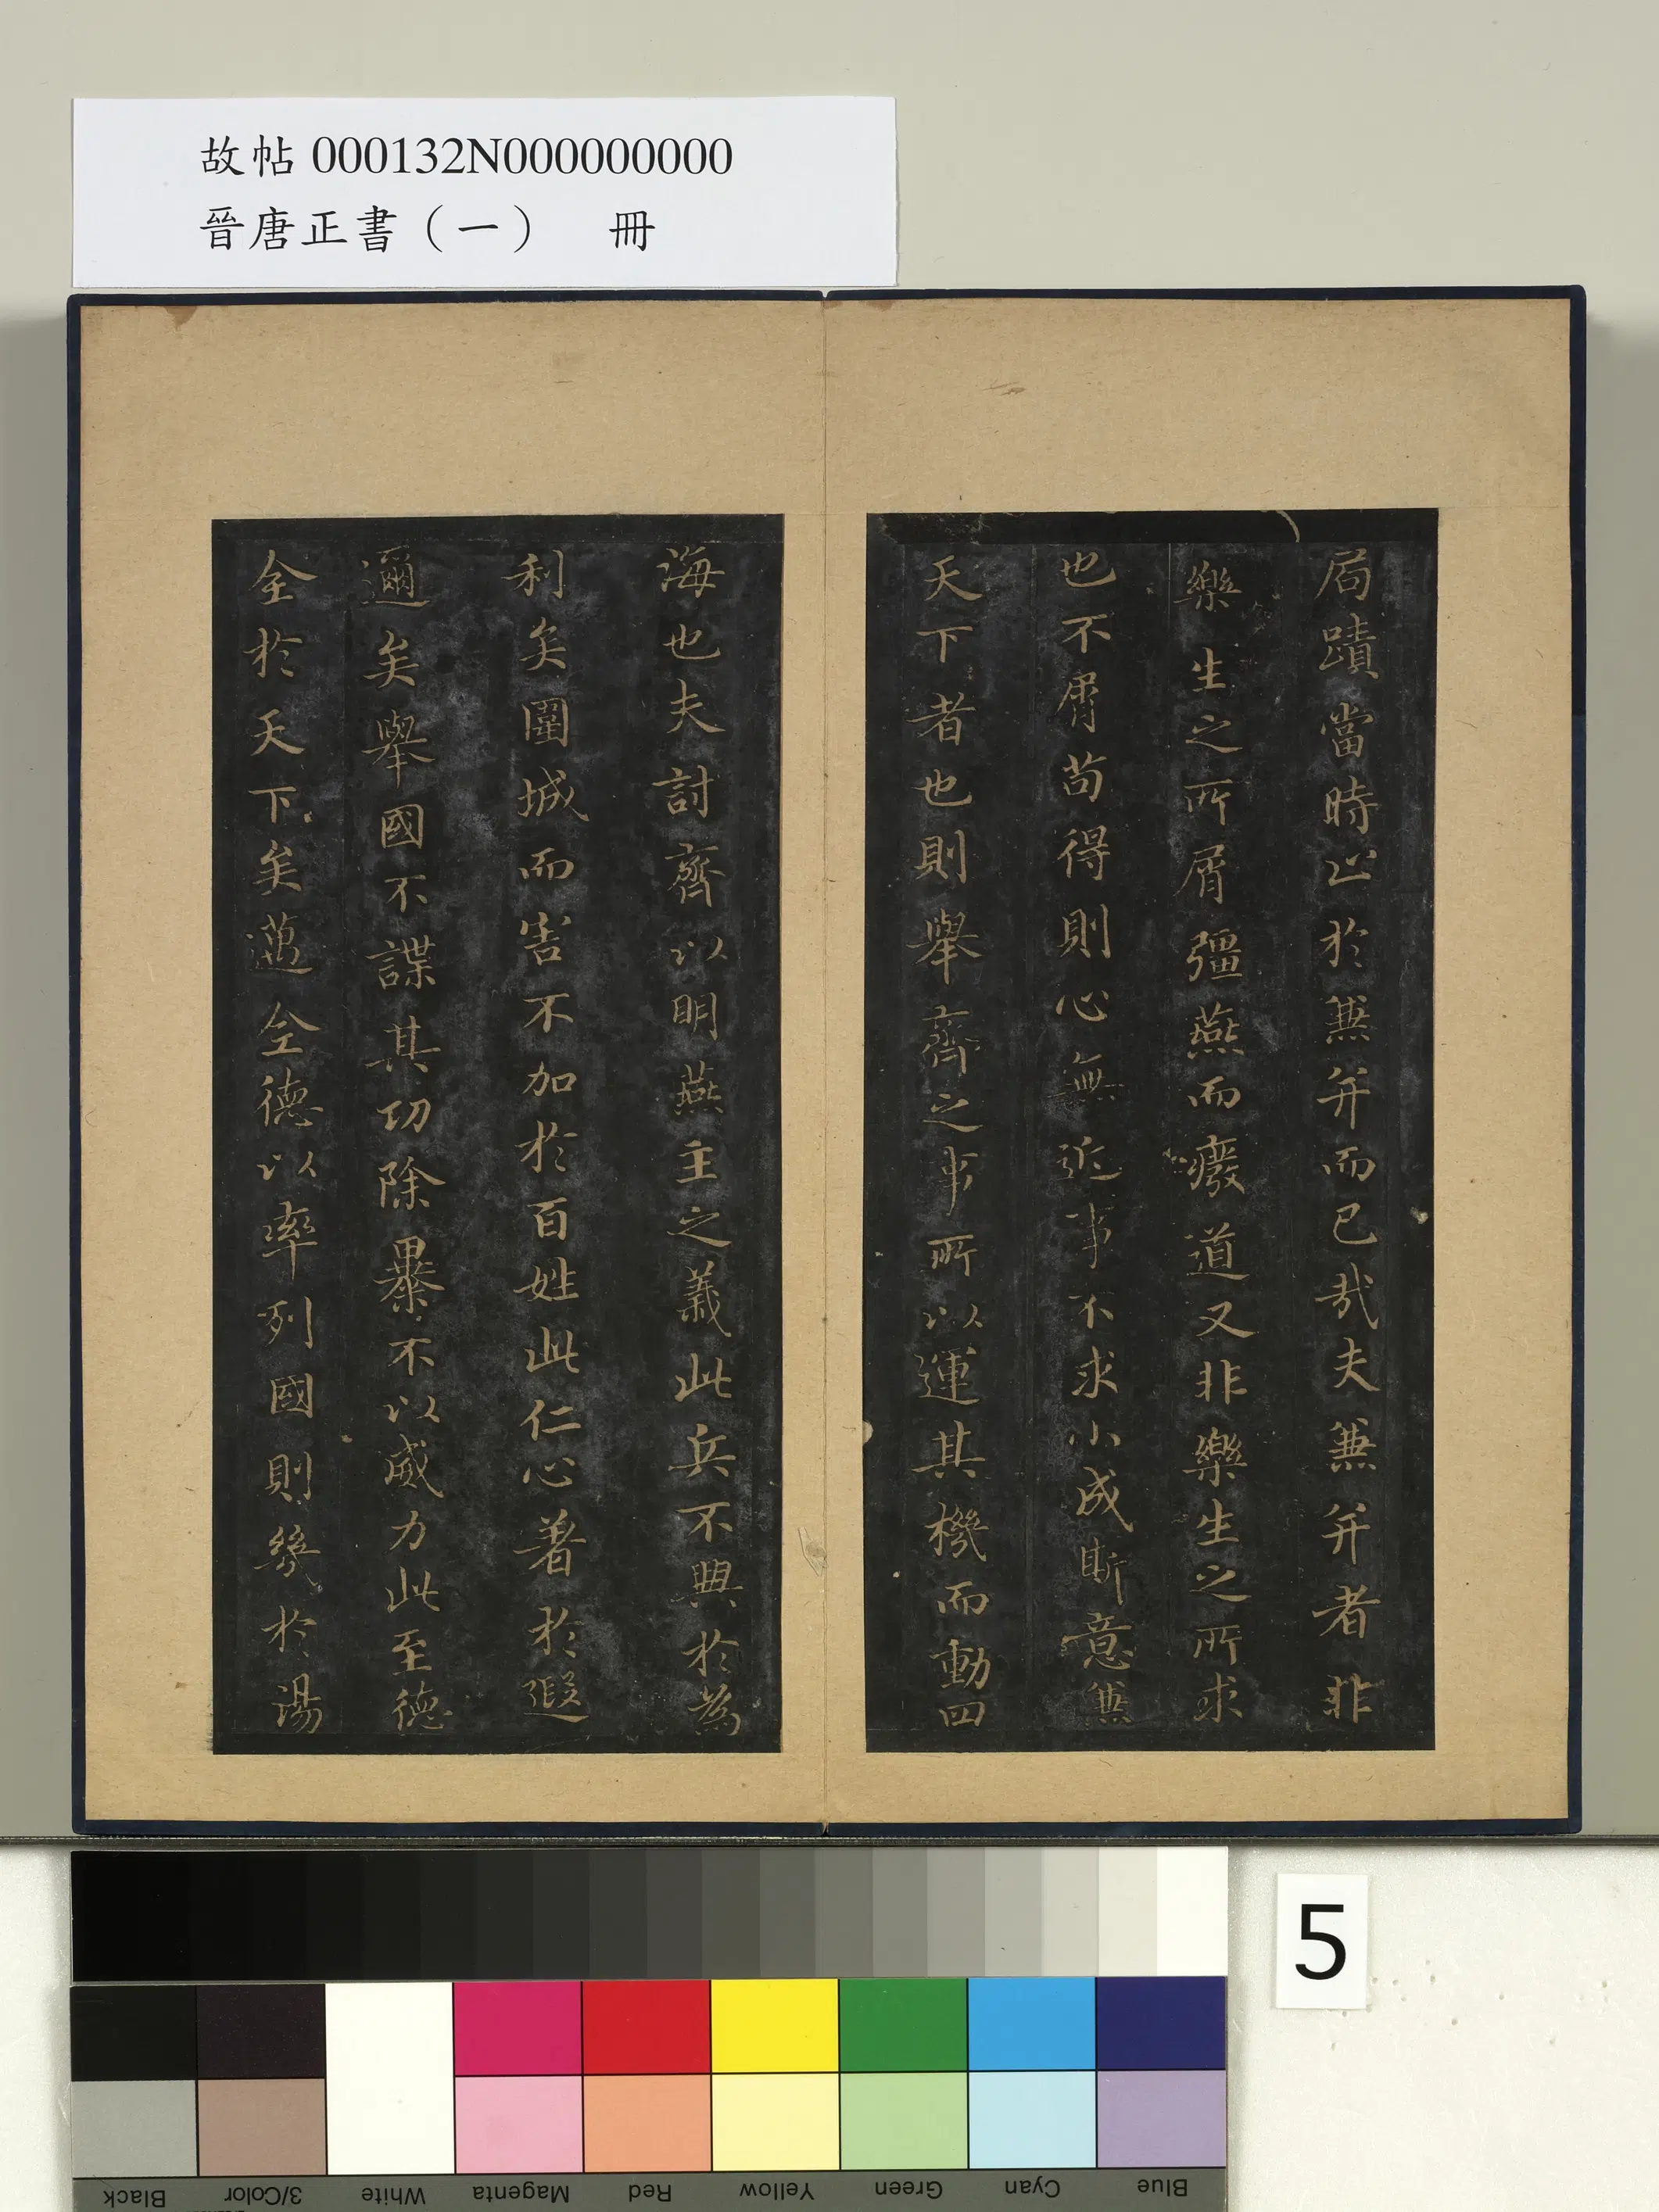 故帖 000132N000000000
晉唐正書（一）　冊
局蹟當時止於兼并而已哉夫兼并者非
樂生之所屑彊燕而癈道又非樂生之所求
也不屑苟得則心無近事不求小成斯意兼
天下者也則舉齊之事所以運其機而動四
海也夫討齊以明燕主之義此兵不興於為
利矣圍城而害不加於百姓此仁心著於遐
邇矣舉國不謀其功除暴不以威力此至德
全於天下矣邁全德以率列國則幾於湯
5
Black
3/Color
White
Magenta
Red
Yellow
Green
Cyan
Blue